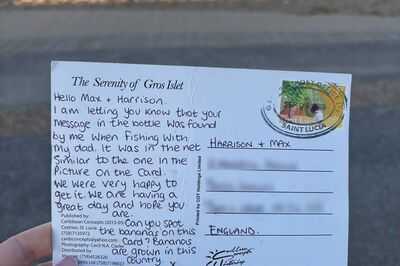 The Serenity of Gros Islet
Hello Max + Harrison
I am letting you know that your
message in the bottle was found
by me when fishing with
my dad. It was in the net
similar to the one in the
picture on the card.
We were very happy to
get it. We are having a
great day and hope you
are.
Can you spot
the bananas on this
card? Bananas
are grown in this
country.
Published by:
Caribbean Concepts
Castries, St. Lucia
Photography:
Distributed
Printed by GST Holdings Limited
SAINT LUCIA
HARRISON + MAX
ENGLAND.